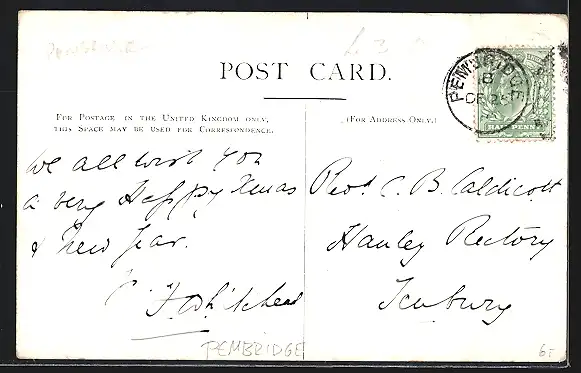 POST CARD.
FOR POSTAGE IN THE UNITED KINGDOM ONLY,
THIS SPACE MAY BE USED FOR CORRESPONDENCE.
(FOR ADDRESS ONLY.)
PEMBRIDGE
B
DE 24
HALF PENNY
We all wish you
a very Happy Xmas
& New Year.
C. F. Whitehead
Revd C. B. Caldicott
Hanley Rectory
Tenbury
PEMBRIDGE